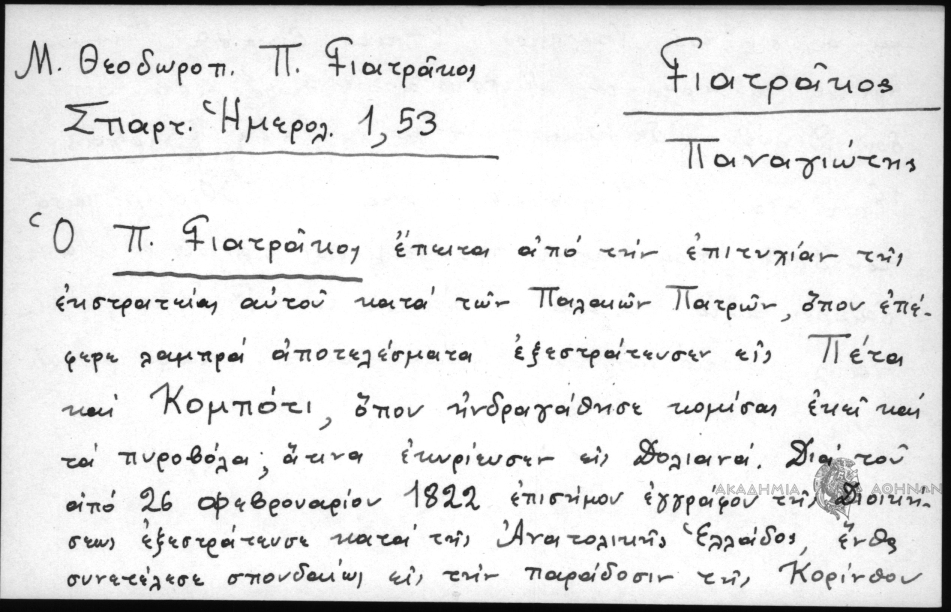 Μ. Θεοδωροπ. Π. Γιατρᾶκος
Σπαρτ. Ἡμερολ. 1,53
Γιατρᾶκος
Παναγιώτης
Ὁ Π. Γιατρᾶκος ἔπειτα ἀπό τήν ἐπιτυχίαν τῆς
ἐκστρατείας αὐτοῦ κατά τῶν Παλαιῶν Πατρῶν, ὅπου ἐπέ-
φερε λαμπρά ἀποτελέσματα ἐξεστράτευσεν εἰς Πέτα
καί Κομπότι, ὅπου ἠνδραγάθησε κομίσας ἐκεῖ καί
τά πυροβόλα, ἅτινα ἐκυρίευσεν εἰς Δολιανά. Διά τοῦ
ἀπό 26 Φεβρουαρίου 1822 ἐπισήμου ἐγγράφου τῆς Διοική-
σεως ἐξεστράτευσε κατά τῆς Ἀνατολικῆς Ἑλλάδος, ἔνθα
συνετέλεσε σπουδαίως εἰς τήν παράδοσιν τῆς Κορίνθου
ΑΚΑΔΗΜΙΑ ΑΘΗΝΩΝ